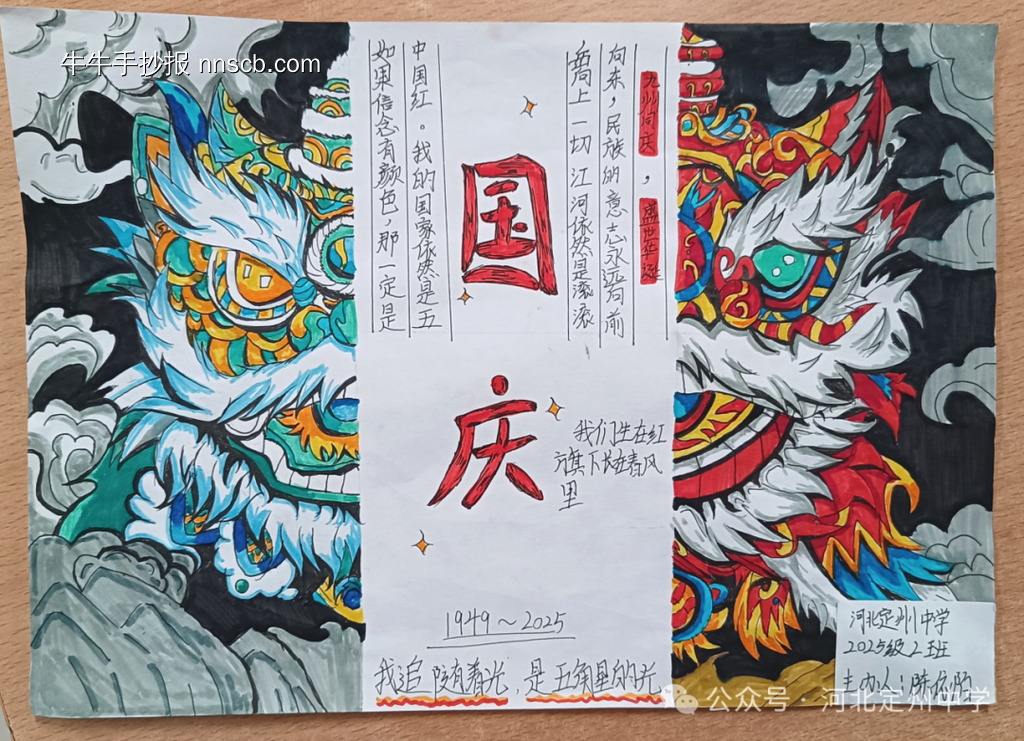 牛牛手抄报 nnscb.com
如果信念有颜色，那一定是
中国红。我的国家依然是五
岳向上一切 江河依然是滚滚
向东，民族的意志永远向前
九州同庆，盛世华诞
国
庆
我们生在红
旗下长在春风
里
1949～2025
我追 光，是五角星的光
河北定州中学
2025级2班
主办人：
公众号·河北定州中学